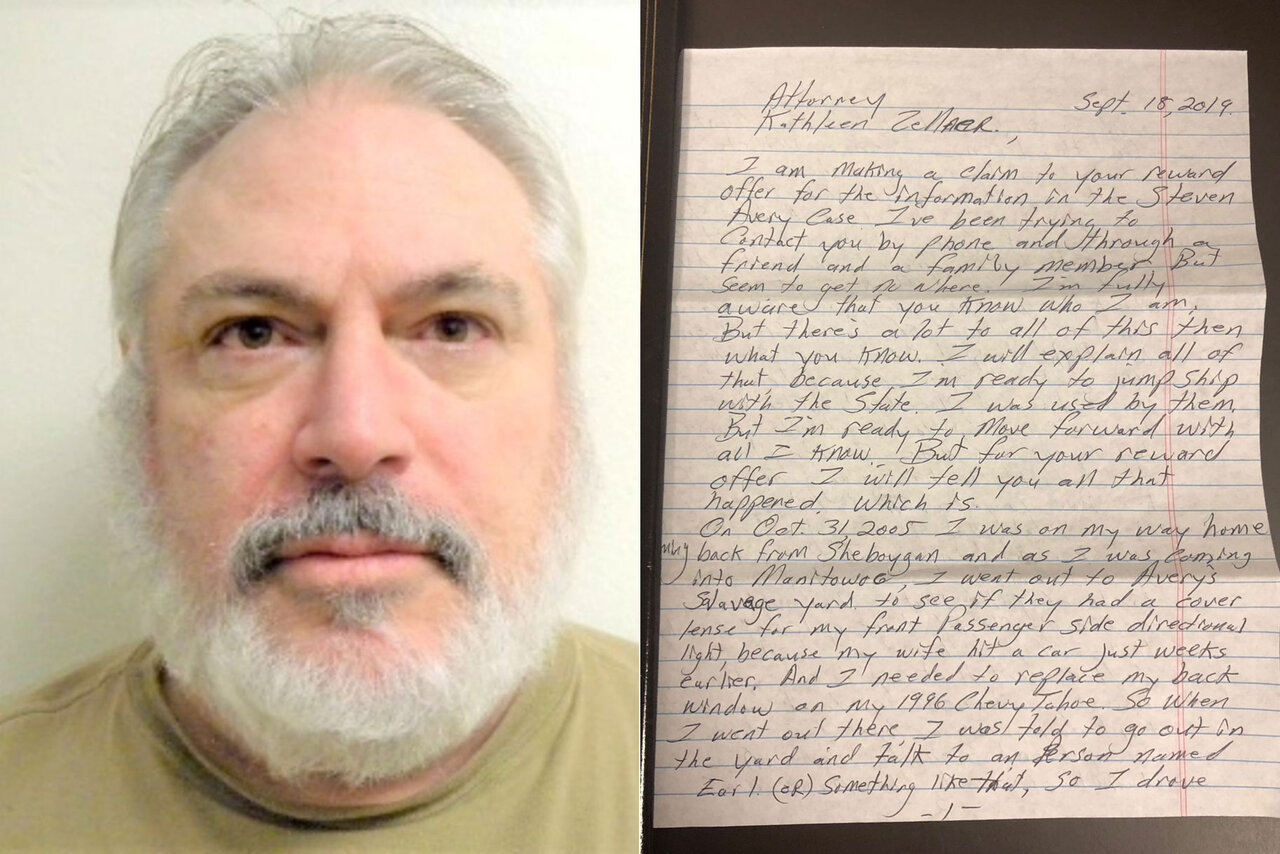 Attorney Sept. 18, 2019.
Kathleen Zellner,
I am making a claim to your reward
offer for the information in the Steven
Avery Case. I've been trying to
Contact you by phone and through a
friend and a family member. But
seem to get no where. I'm fully
aware that you know who I am.
But there's a lot to all of this then
what you know. I will explain all of
that, because I'm ready to jump ship
with the State. I was used by them.
But I'm ready to move forward with
all I know. But for your reward
offer I will tell you all that
happened. Which is.
On Oct. 31 2005 I was on my way home
back from Sheboygan and as I was coming
into Manitowoc, I went out to Avery's
Salavage yard to see if they had a cover
lense for my front Passenger side directional
light, because my wife hit a car just weeks
earlier. And I needed to replace my back
window on my 1996 Chevy Tahoe. So when
I went out there, I was told to go out in
the yard and talk to an Person named
Earl. (oR) Something like that, So I drove
-1-